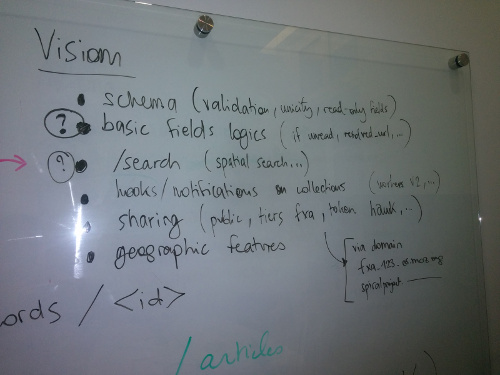 Vision
• schema (validation, unicity, read-only fields)
? • basic fields logics (if unread, resolved_url, ...)
? • /search (spatial search...)
• hooks/notifications on collections (workers v2, ...)
• sharing (public, tiers fxa, token hawk, ...)
• geographic features
via domain
ords / <id>
/articles